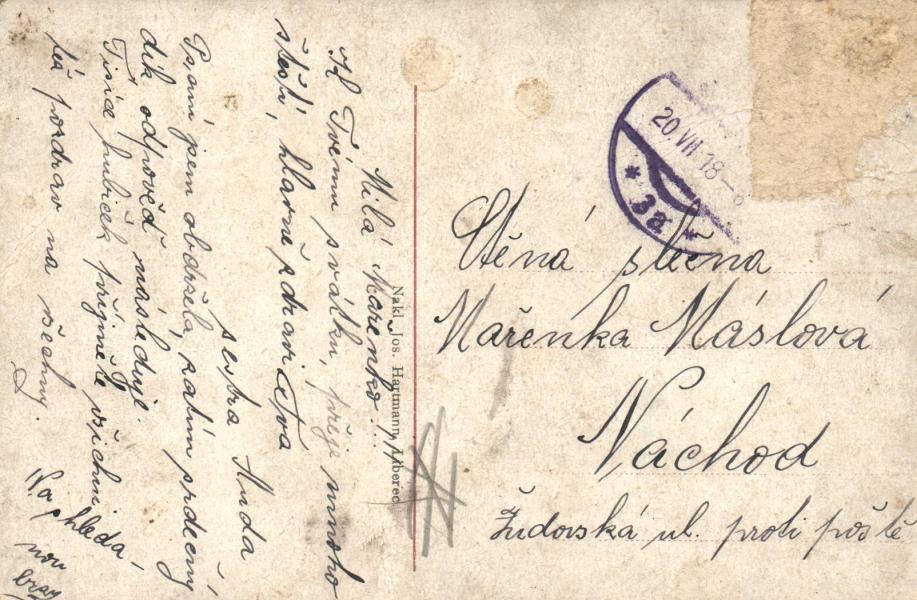 Milá Mařenko!..
K Tvému svátku, přeje mnoho
štěstí, hlavně zdraví Tvá
sestra Anda
Psaní jsem obdržela, zatím srdečný
dík odpověď následuje.
Tisíce hubiček přijměte všichni
též pozdrav na všechny.
Na shleda,
nou
brzy
Nakl. Jos. Hartmann, Liberec
20. VII. 18
* 3a *
Ctěná slečna
Mařenka Máslová
Náchod
Židovská ul. proti poště